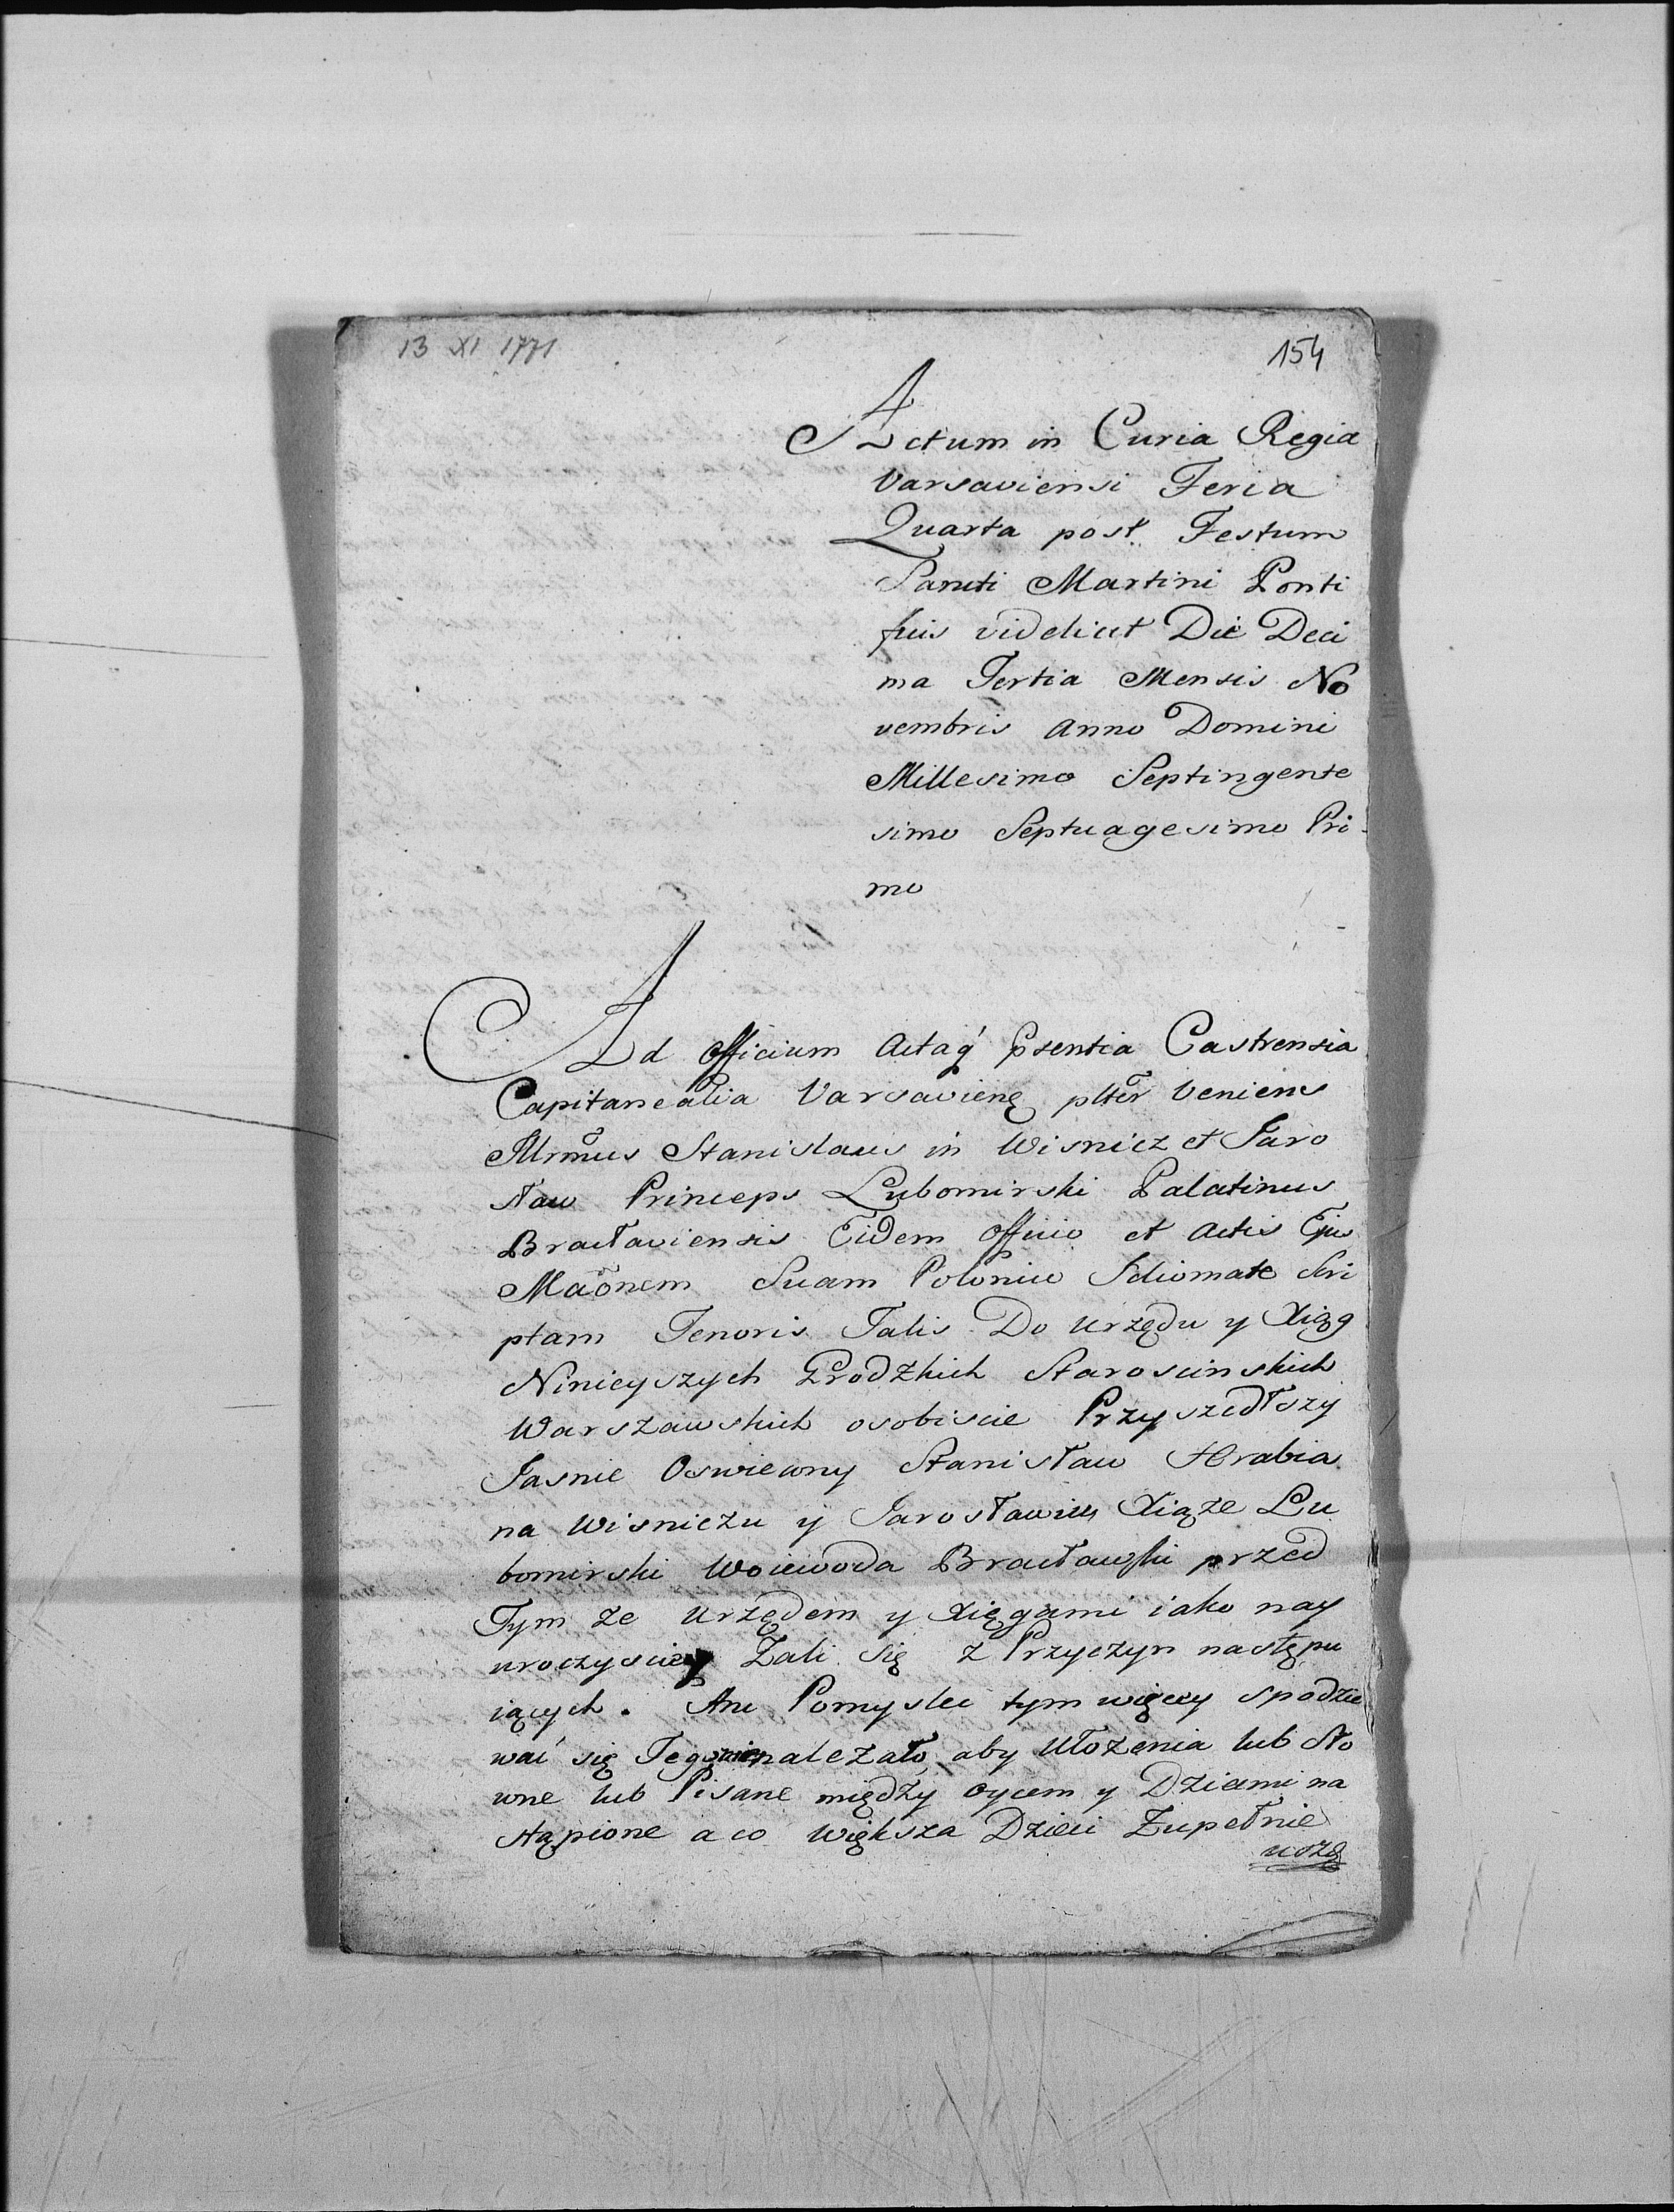 13 XI 1771
154
Actum in Curia Regia
Varsaviensi Feria
Quarta post Festum
Sancti Martini Ponti
ficis videlicet Die Deci
ma Tertia Mensis No
vembris Anno Domini
Millesimo Septingente
simo Septuagesimo Pri
mo
Ad Officium Actaq́ p̃sentia Castrensia
Capitanealia Varsavieñ pltẽr Veniens
Illrm̃us Stanislaus in Wisnicz et Jaro
sław Princeps Lubomirski Palatinus
Bracłaviensis Eidem Officio et Actis Ejus
Mãonem Suam Polonico Idiomate Scri
ptam Tenoris Talis Do Urzędu y Xiąg
Ninieyszych Grodzkich Staroscinskich
Warszawskich osobiscie Przyszedłszy
Jasnie Oswiecony Stanisław Hrabia
na Wisniczu y Jarosławiu Xiąze Lu
bomirski Woiewoda Bracławski przed
Tym ze Urzędem y Xięgami iako nay
uroczysciey Zali Się z Przyczyn następu
iących. Ani Pomyslec tym więcey spodzie
wać się Tego nienalezało, aby Ułozenia lub Sło
wne lub Pisane między Oycem y Dziecmi na
stąpione a co większa Dzieci Zupełnie